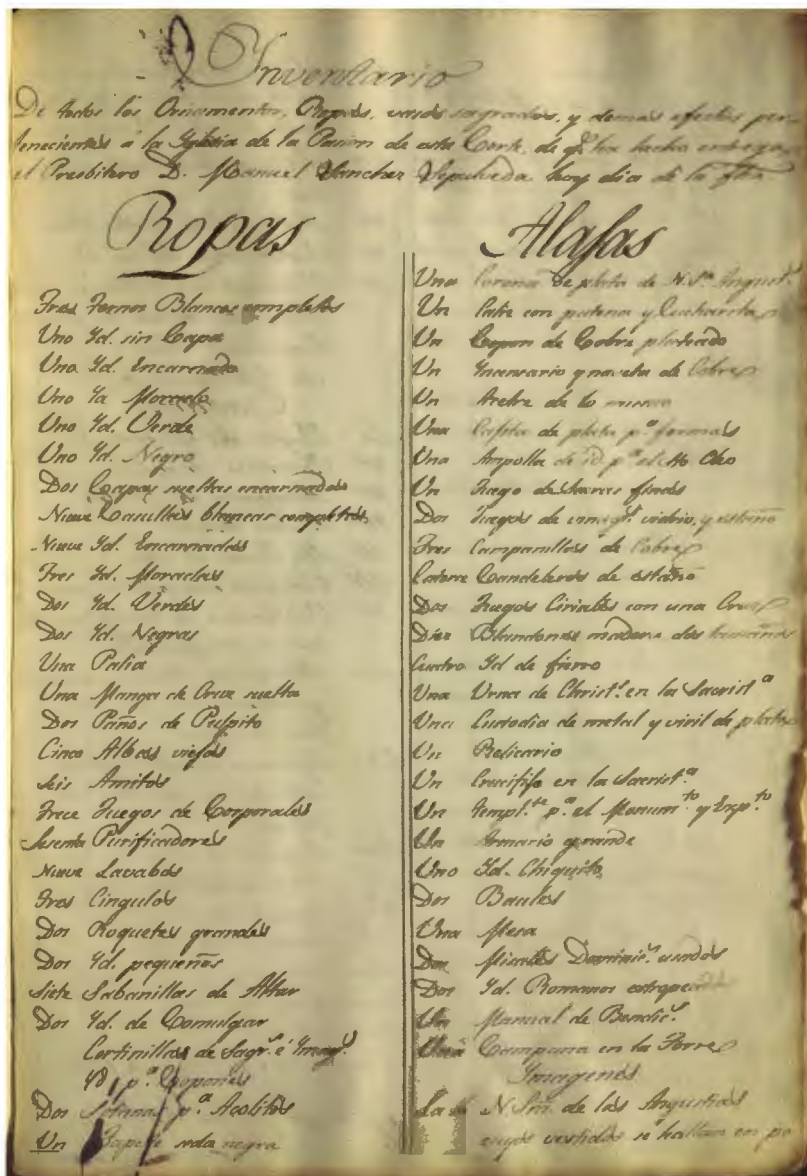 Inventario
De todos los Ornamentos, Ropas, vasos sagrados, y demas efectos per-
tenecientes á la Iglesia de la Pasion de esta Corte, de q.e ha hecho entrega
el Presbitero D. Manuel Sanchez Sepulveda hoy dia de la fha
Ropas
Tres Ternos Blancos completos
Uno Yd. sin Capa
Uno Yd. Encarnado
Uno Yd. Morado
Uno Yd. Verde
Uno Yd. Negro
Dos Capas sueltas encarnadas
Nueve Casullas blancas completas
Nueve Yd. Encarnadas
Tres Yd. Moradas
Dos Yd. Verdes
Dos Yd. Negras
Una Palia
Una Manga de Cruz suelta
Dos Paños de Pulpito
Cinco Albas viejas
Seis Amitos
Trece Juegos de Corporales
Sesenta Purificadores
Nueve Lavabos
Tres Cingulos
Dos Roquetes grandes
Dos Yd. pequeños
Siete Sabanillas de Altar
Dos Yd. de Comulgar
Cortinillas de Sagr.o é Imag.s
Yd. p.a Copones
Dos Sotanas p.a Acolitos
Un seda negra
Alajas
Una Corona de plata de N. S.ra Angust.s
Un Caliz con patena y Cucharita
Un Copon de Cobre plateado
Un Incensario y naveta de Cobre
Un de lo mismo
Una Cajita de plata p.a formas
Una Ampolla de id p.a el Sto Oleo
Un Juego de Sacras finas
Dos Juegos de vinag.s vidrio, y estaño
Tres Campanillas de Cobre
Catorce Candeleros de estaño
Dos Juegos Ciriales con una Cruz
Diez Blandones madera dos tamaños
Cuatro Yd de fierro
Una Urna de Christ.l en la Sacrist.a
Una Custodia de metal y viril de plata
Un Relicario
Un Crucifijo en la Sacrist.a
Un Templ.te p.a el Monum.to y Esp.to
Un Armario grande
Uno Yd. Chiquito
Dos Baules
Una Mesa
Dos Misales Dominic.s usados
Dos Yd. Romanos estropeados
Un Manual de Bendic.s
Una Campana en la Torre
Imagenes
La N. Sra. de las Angustias
cuyos vestidos se hallan en po